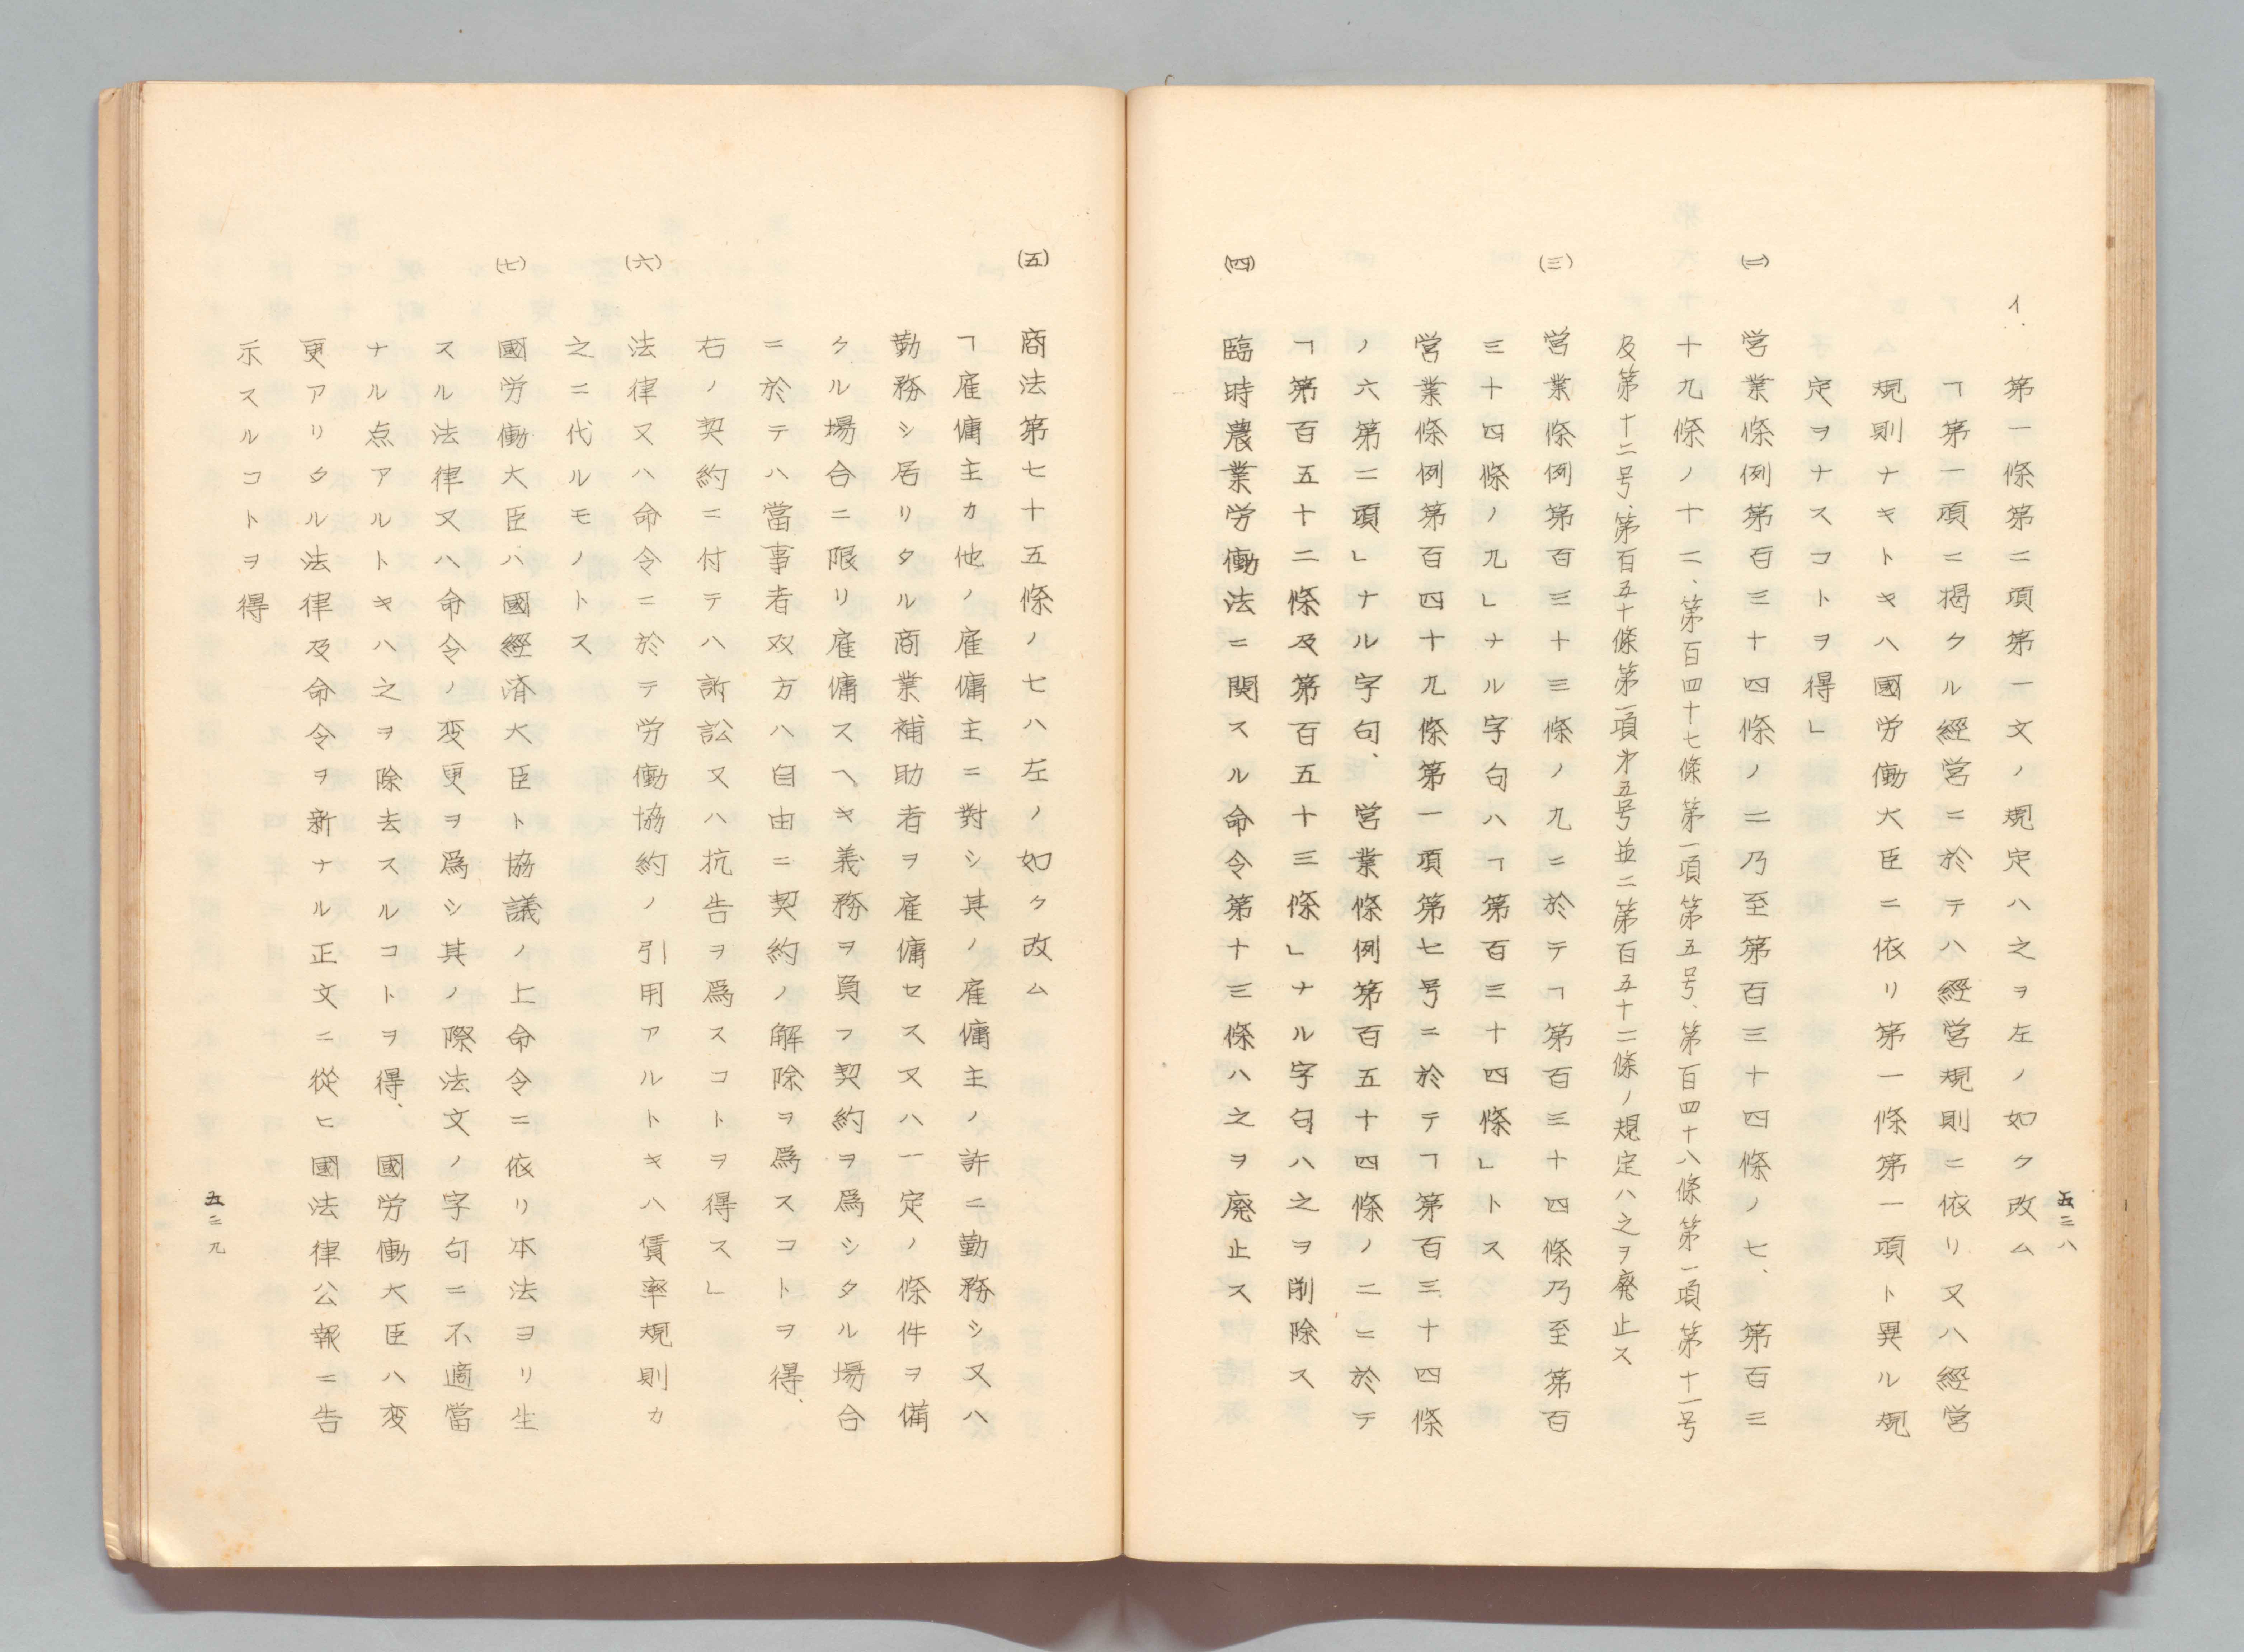 イ. 第一條第二項第一文ノ規定ハ之ヲ左ノ如ク改ム
「第一項ニ掲クル經営ニ於テハ經営規則ニ依リ又ハ經営
規則ナキトキハ國労働大臣ニ依リ第一條第一項ト異ル規
定ヲナスコトヲ得」
(二) 営業條例第百三十四條ノ二乃至第百三十四條ノ七、第百三
十九條ノ十二、第百四十七條第一項第五号、第百四十八條第一項第十一号
及第十二号、第百五十條第一項第五号並ニ第百五十二條ノ規定ハ之ヲ廃止ス
(三) 営業條例第百三十三條ノ九ニ於テ「第百三十四條乃至第百
三十四條ノ九」ナル字句ハ「第百三十四條」トス
営業條例第百四十九條第一項第七号ニ於テ「第百三十四條
ノ六第二項」ナル字句、営業條例第百五十四條ノ二ニ於テ
「第百五十二條及第百五十三條」ナル字句ハ之ヲ削除ス
(四) 臨時農業労働法ニ関スル命令第十三條ハ之ヲ廃止ス
五三八
(五) 商法第七十五條ノ七ハ左ノ如ク改ム
「雇傭主カ他ノ雇傭主ニ對シ其ノ雇傭主ノ許ニ勤務シ又ハ
勤務シ居リタル商業補助者ヲ雇傭セス又ハ一定ノ條件ヲ備
クル場合ニ限リ雇傭スヘキ義務ヲ負フ契約ヲ爲シタル場合
ニ於テハ當事者双方ハ自由ニ契約ノ解除ヲ爲スコトヲ得、
右ノ契約ニ付テハ訴訟又ハ抗告ヲ爲スコトヲ得ス」
(六) 法律又ハ命令ニ於テ労働協約ノ引用アルトキハ賃率規則カ
之ニ代ルモノトス
(七) 國労働大臣ハ國經済大臣ト協議ノ上命令ニ依リ本法ヨリ生
スル法律又ハ命令ノ変更ヲ爲シ其ノ際法文ノ字句ニ不適當
ナル点アルトキハ之ヲ除去スルコトヲ得、國労働大臣ハ変
更アリタル法律及命令ヲ新ナル正文ニ從ヒ國法律公報ニ告
示スルコトヲ得
五三九